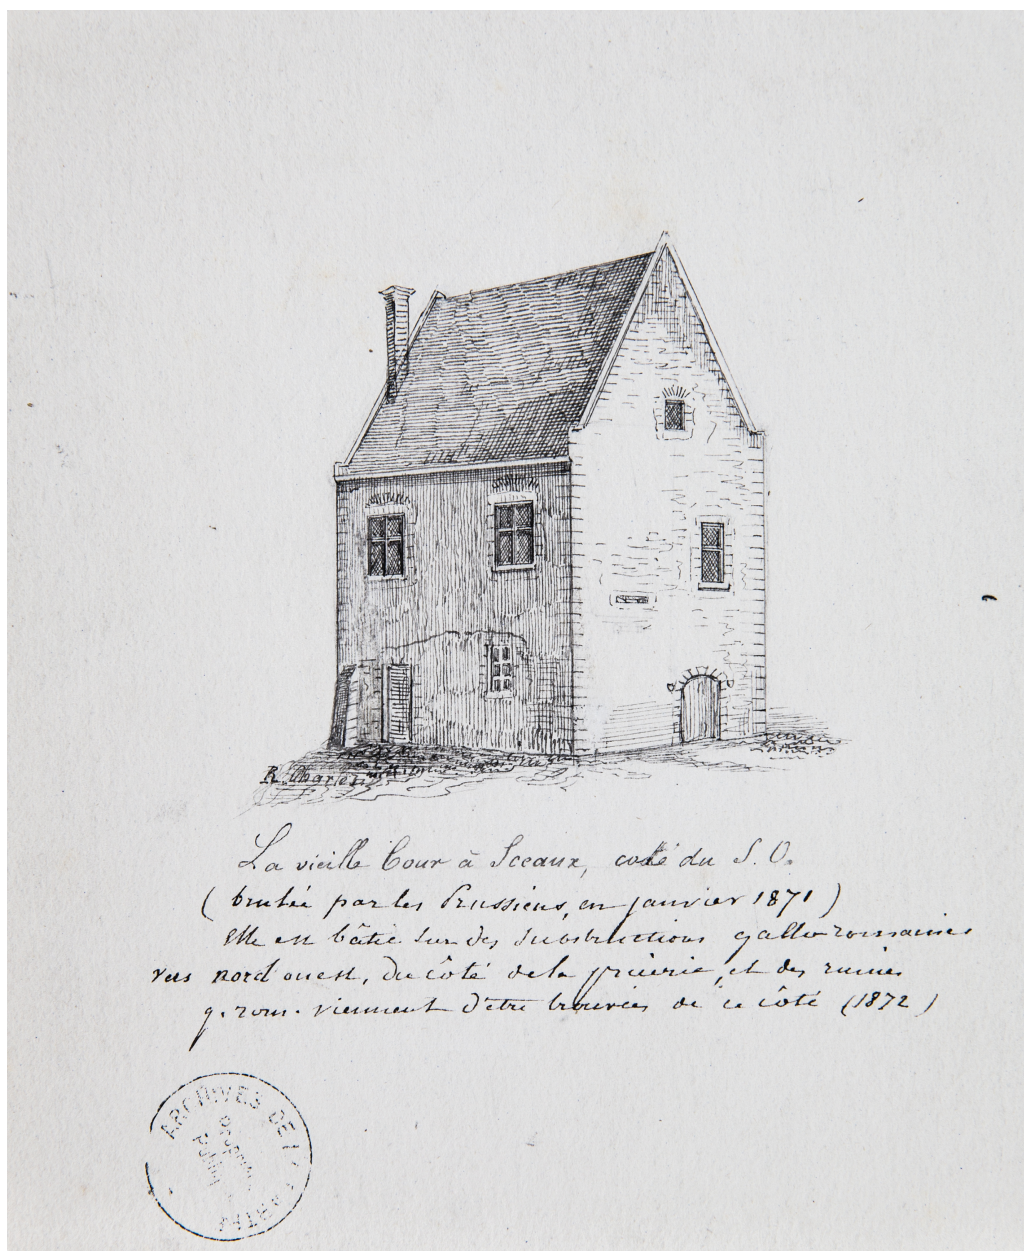 R. Charles
La vieille Cour à Sceaux, coté du S. O.
( brulée par les Prussiens, en janvier 1871 )
Elle est bâtie sur des substructions gallo-romaines
vers nord ouest, du côté de la prairie, et des ruines
g. rom. viennent d'être trouvées de ce côté (1872)
ARCHIVES DE LA SARTHE